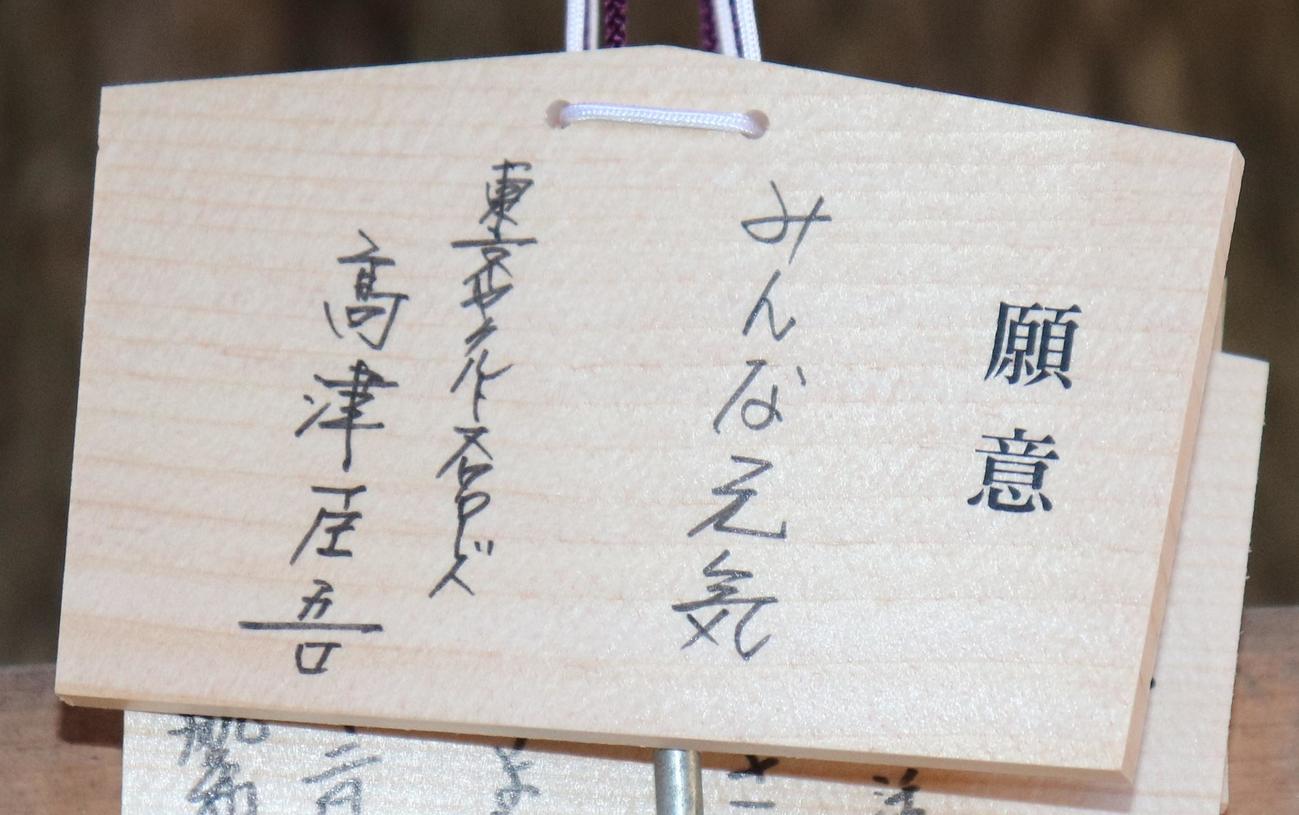 願意
みんな元気
東京ヤクルトスワローズ
髙津臣吾